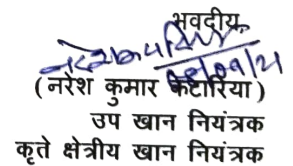 भवदीय,
(नरेश कुमार कटारिया)
उप खान नियंत्रक
कृते क्षेत्रीय खान नियंत्रक